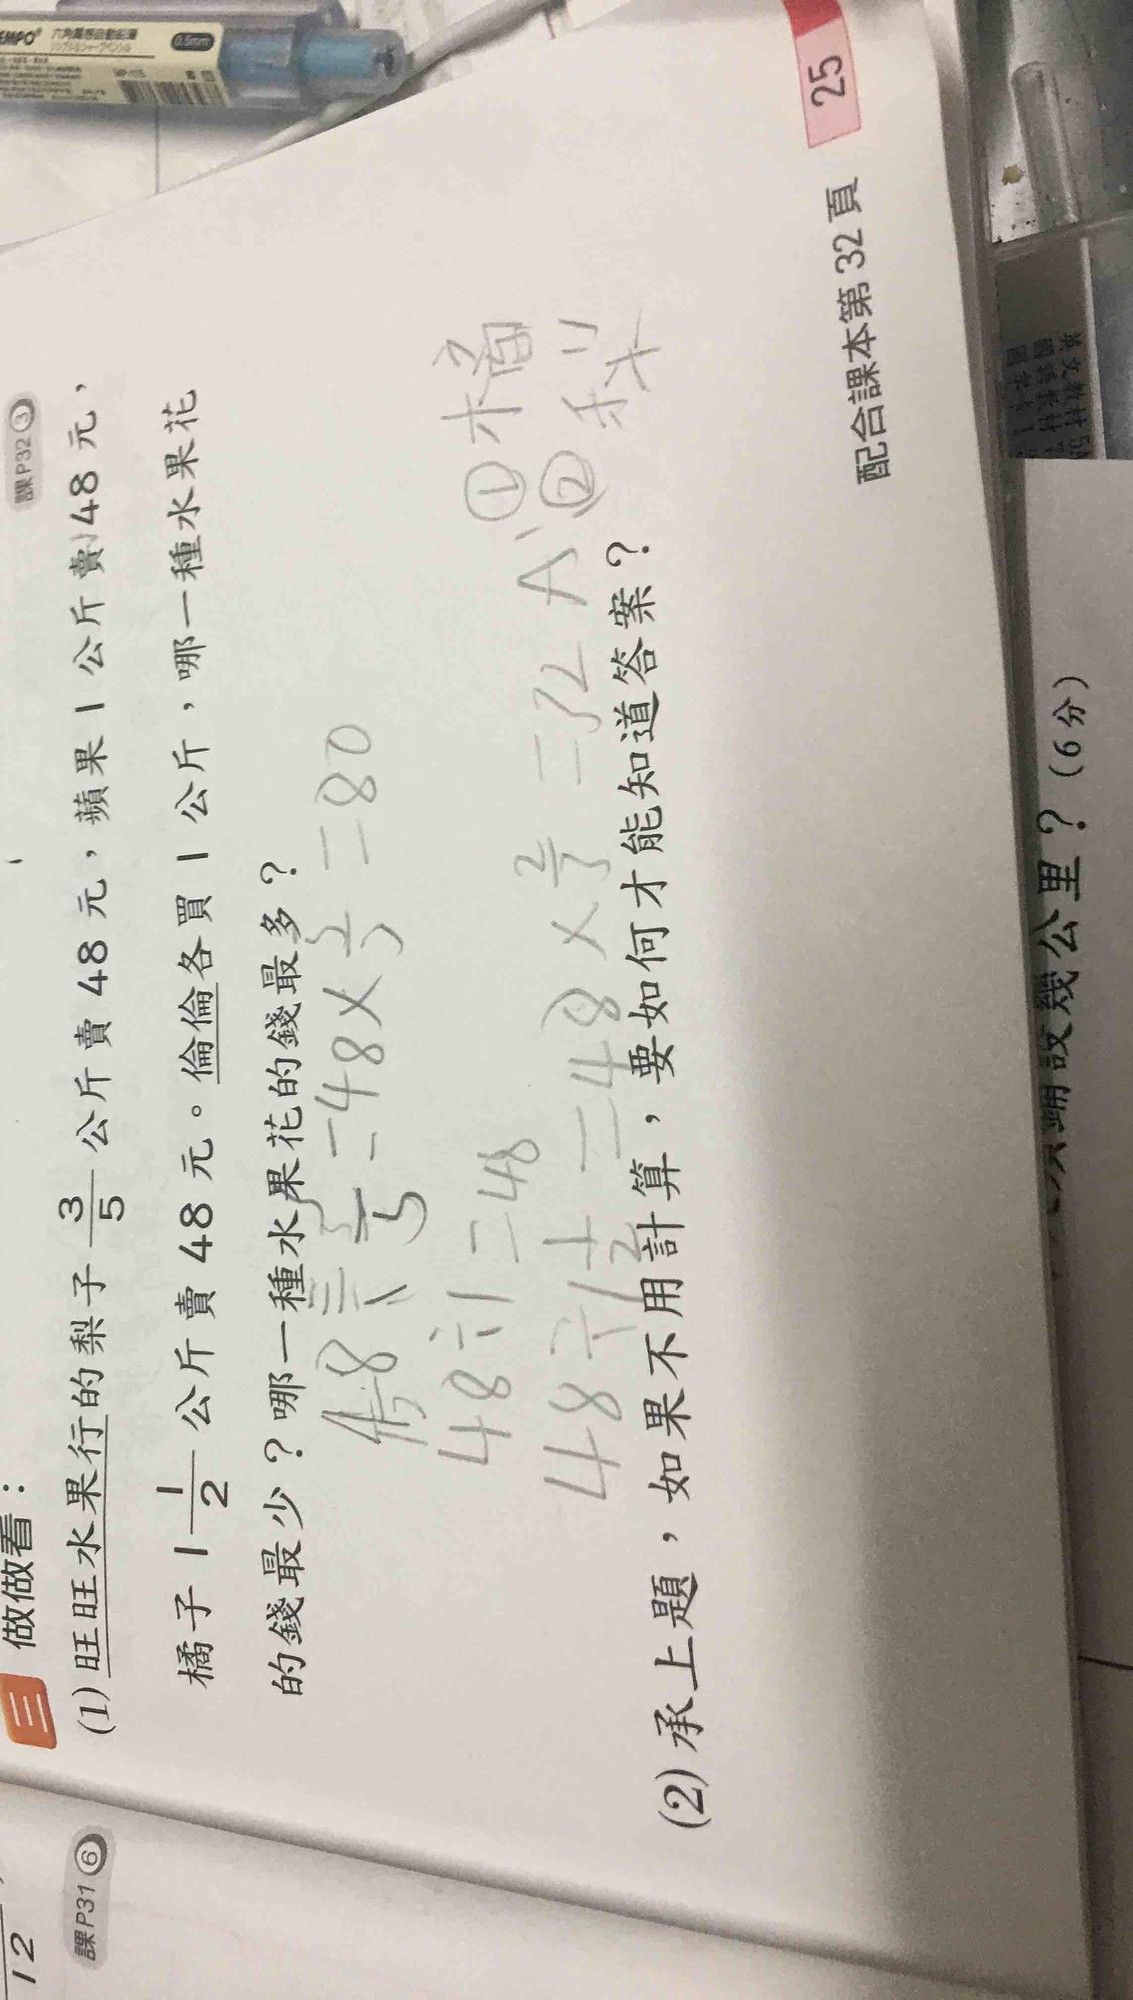 TEMPO 六角 自動鉛筆 0.5mm
12
課P31 ⑥
三 做做看：
課P32 ③
(1) 旺旺水果行的梨子 3/5 公斤賣 48 元，蘋果 1 公斤賣 48 元，
橘子 1 1/2 公斤賣 48 元。倫倫各買 1 公斤，哪一種水果花
的錢最少？哪一種水果花的錢最多？
48 ÷ 3/5 = 48 × 5/3 = 80
48 ÷ 1 = 48
48 ÷ 1 1/2 = 48 × 2/3 = 32 A、①橘
②梨
(2) 承上題，如果不用計算，要如何才能知道答案？
配合課本第 32 頁 25
設幾公里？(6分)